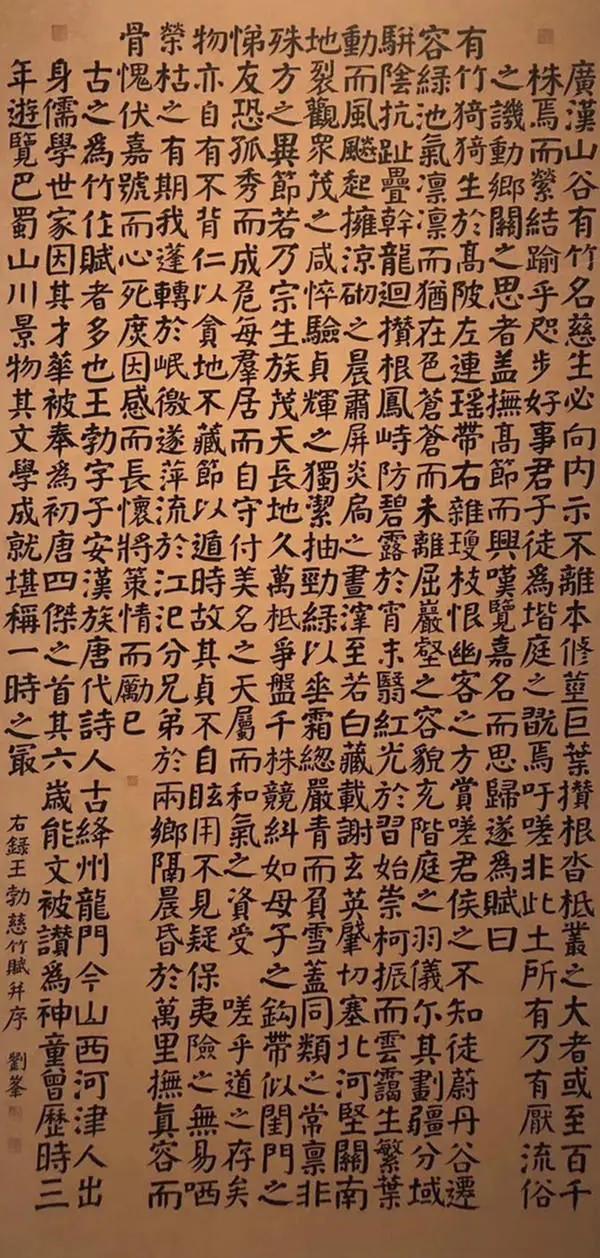 廣漢山谷有竹名慈生必向内示不離本修莖巨葉攢根沓柢叢之大者或至百千
株焉而縈結踰乎咫步好事君子徒為堦庭之翫焉吁嗟非此土所有乃有厭流俗
之譏動鄉關之思者盖撫髙節而興嘆覽嘉名而思歸遂為賦曰
有竹猗猗生於髙陂左連瑶帶右雜瓊枝恨幽客之方賞嗟君侯之不知徒蔚丹谷遷
容緑池氣凛凛而猶在色蒼蒼而未離屈巖壑之容貌充階庭之羽儀尓其劃疆分域
駢陰抗趾疊幹龍迴攢根鳳峙防碧露於宵末翳紅光於習始崇柯振而雲靄生繁葉
動而風飈起擁涼砌之晨肅屏炎扃之晝滓至若白藏載謝玄英肇切塞北河堅關南
地裂觀衆茂之咸悴驗貞輝之獨潔抽勁緑以垂霜總嚴青而負雪蓋同類之常禀非
殊方之異節若乃宗生族茂天長地久萬柢爭盤千株競糾如母子之鈎帶似閨門之
悌友恐孤秀而成危每羣居而自守付美名之天屬而和氣之資受 嗟乎道之存矣
物亦自有不背仁以貪地不藏節以遁時故其貞不自眩用不見疑保夷險之無易哂
榮枯之有期我蓬轉於岷徼遂萍流於江汜分兄弟於兩鄉隔晨昏於萬里撫眞容而
骨愧伏嘉號而心死庶因感而長懷將策情而勵己
古之為竹作賦者多也王勃字子安漢族唐代詩人古絳州龍門今山西河津人出
身儒學世家因其才華被奉為初唐四傑之首其六歲能文被讚為神童曾歷時三
年遊覽巴蜀山川景物其文學成就堪稱一時之冣
右錄王勃慈竹賦并序 劉峯